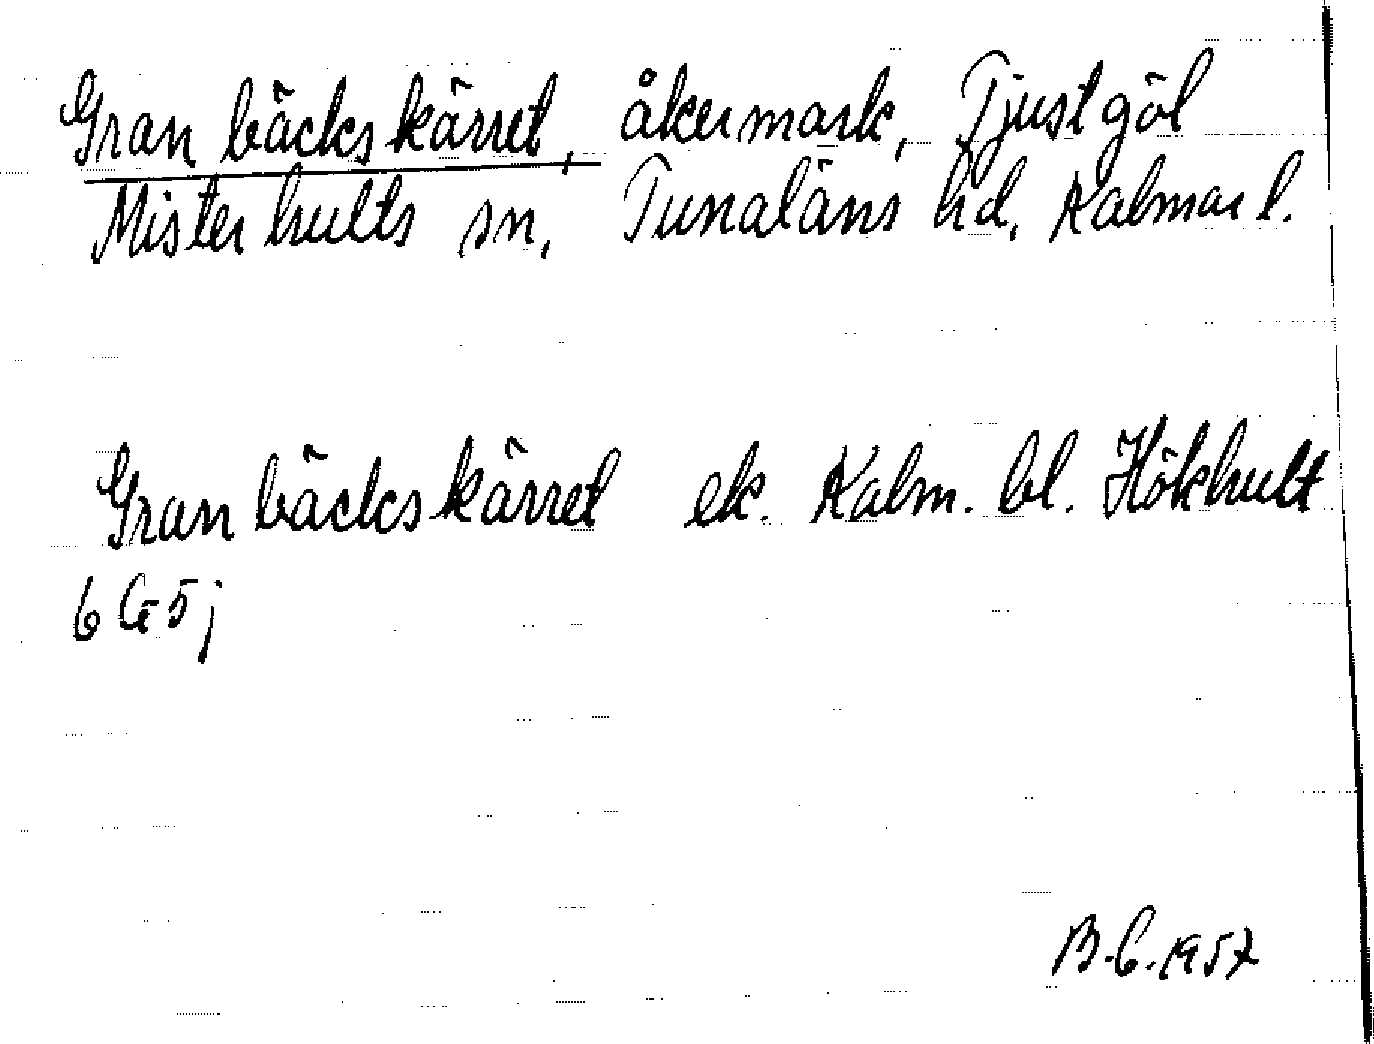 Granbäckskärret, åkermark, Tjustgöl
Misterhults sn, Tunaläns hd, Kalmar l.
Granbäckskärret ek. Kalm. bl. Hökhult
6 G 5 j
B.C. 1957